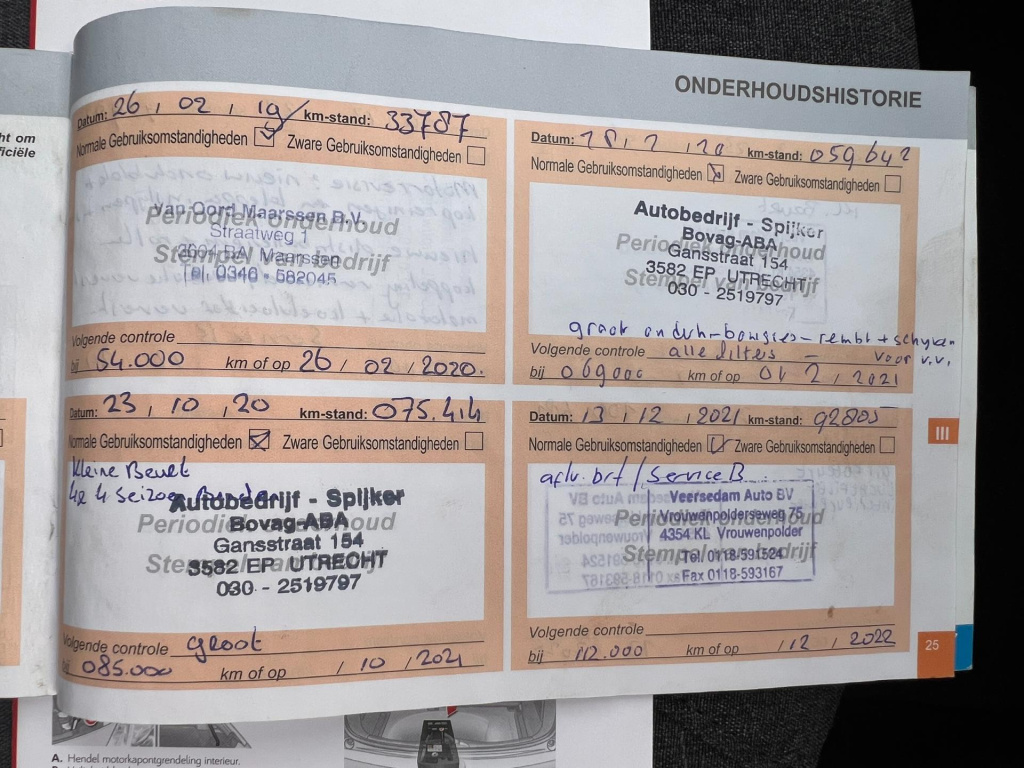 ht om
ficiële
ONDERHOUDSHISTORIE
Datum: 26 , 02 , 19 km-stand: 33787
Normale Gebruiksomstandigheden Zware Gebruiksomstandigheden
Van Oord Maarssen B.V.
Periodiek onderhoud
Straatweg 1
Stempel van bedrijf
Maarssen
Tel. 0346 - 582045
Volgende controle
bij 54.000 km of op 26 / 02 / 2020.
Datum: 18, 2, 20 km-stand: 059642
Normale Gebruiksomstandigheden Zware Gebruiksomstandigheden
Autobedrijf - Spijker
Bovag-ABA
Periodiek onderhoud
Gansstraat 154
3582 EP UTRECHT
Stempel van bedrijf
030 - 2519797
groot onderh - bougies - rembl + schijven
Volgende controle alle filters - voor v.v.
bij 069000 km of op 01 2 / 2021
Datum: 23 , 10 , 20 km-stand: 075.414
Normale Gebruiksomstandigheden Zware Gebruiksomstandigheden
Kleine Beurt
4x 4 Seizoen Banden
Autobedrijf - Spijker
Bovag-ABA
Periodiek onderhoud
Gansstraat 154
3582 EP UTRECHT
Stempel van bedrijf
030 - 2519797
Volgende controle groot
bij 085.000 km of op / 10 / 2021
Datum: 13 , 12 , 2021 km-stand: 92805
Normale Gebruiksomstandigheden Zware Gebruiksomstandigheden
aflv. brt / Service B
Veersedam Auto BV
Vrouwenpolderseweg 75
Periodiek onderhoud
4354 KL Vrouwenpolder
Stempel van bedrijf
Tel. 0118-591524
Fax 0118-593167
Volgende controle
bij 112.000 km of op / 12 / 2022
III
25
A. Hendel motorkapontgrendeling interieur.